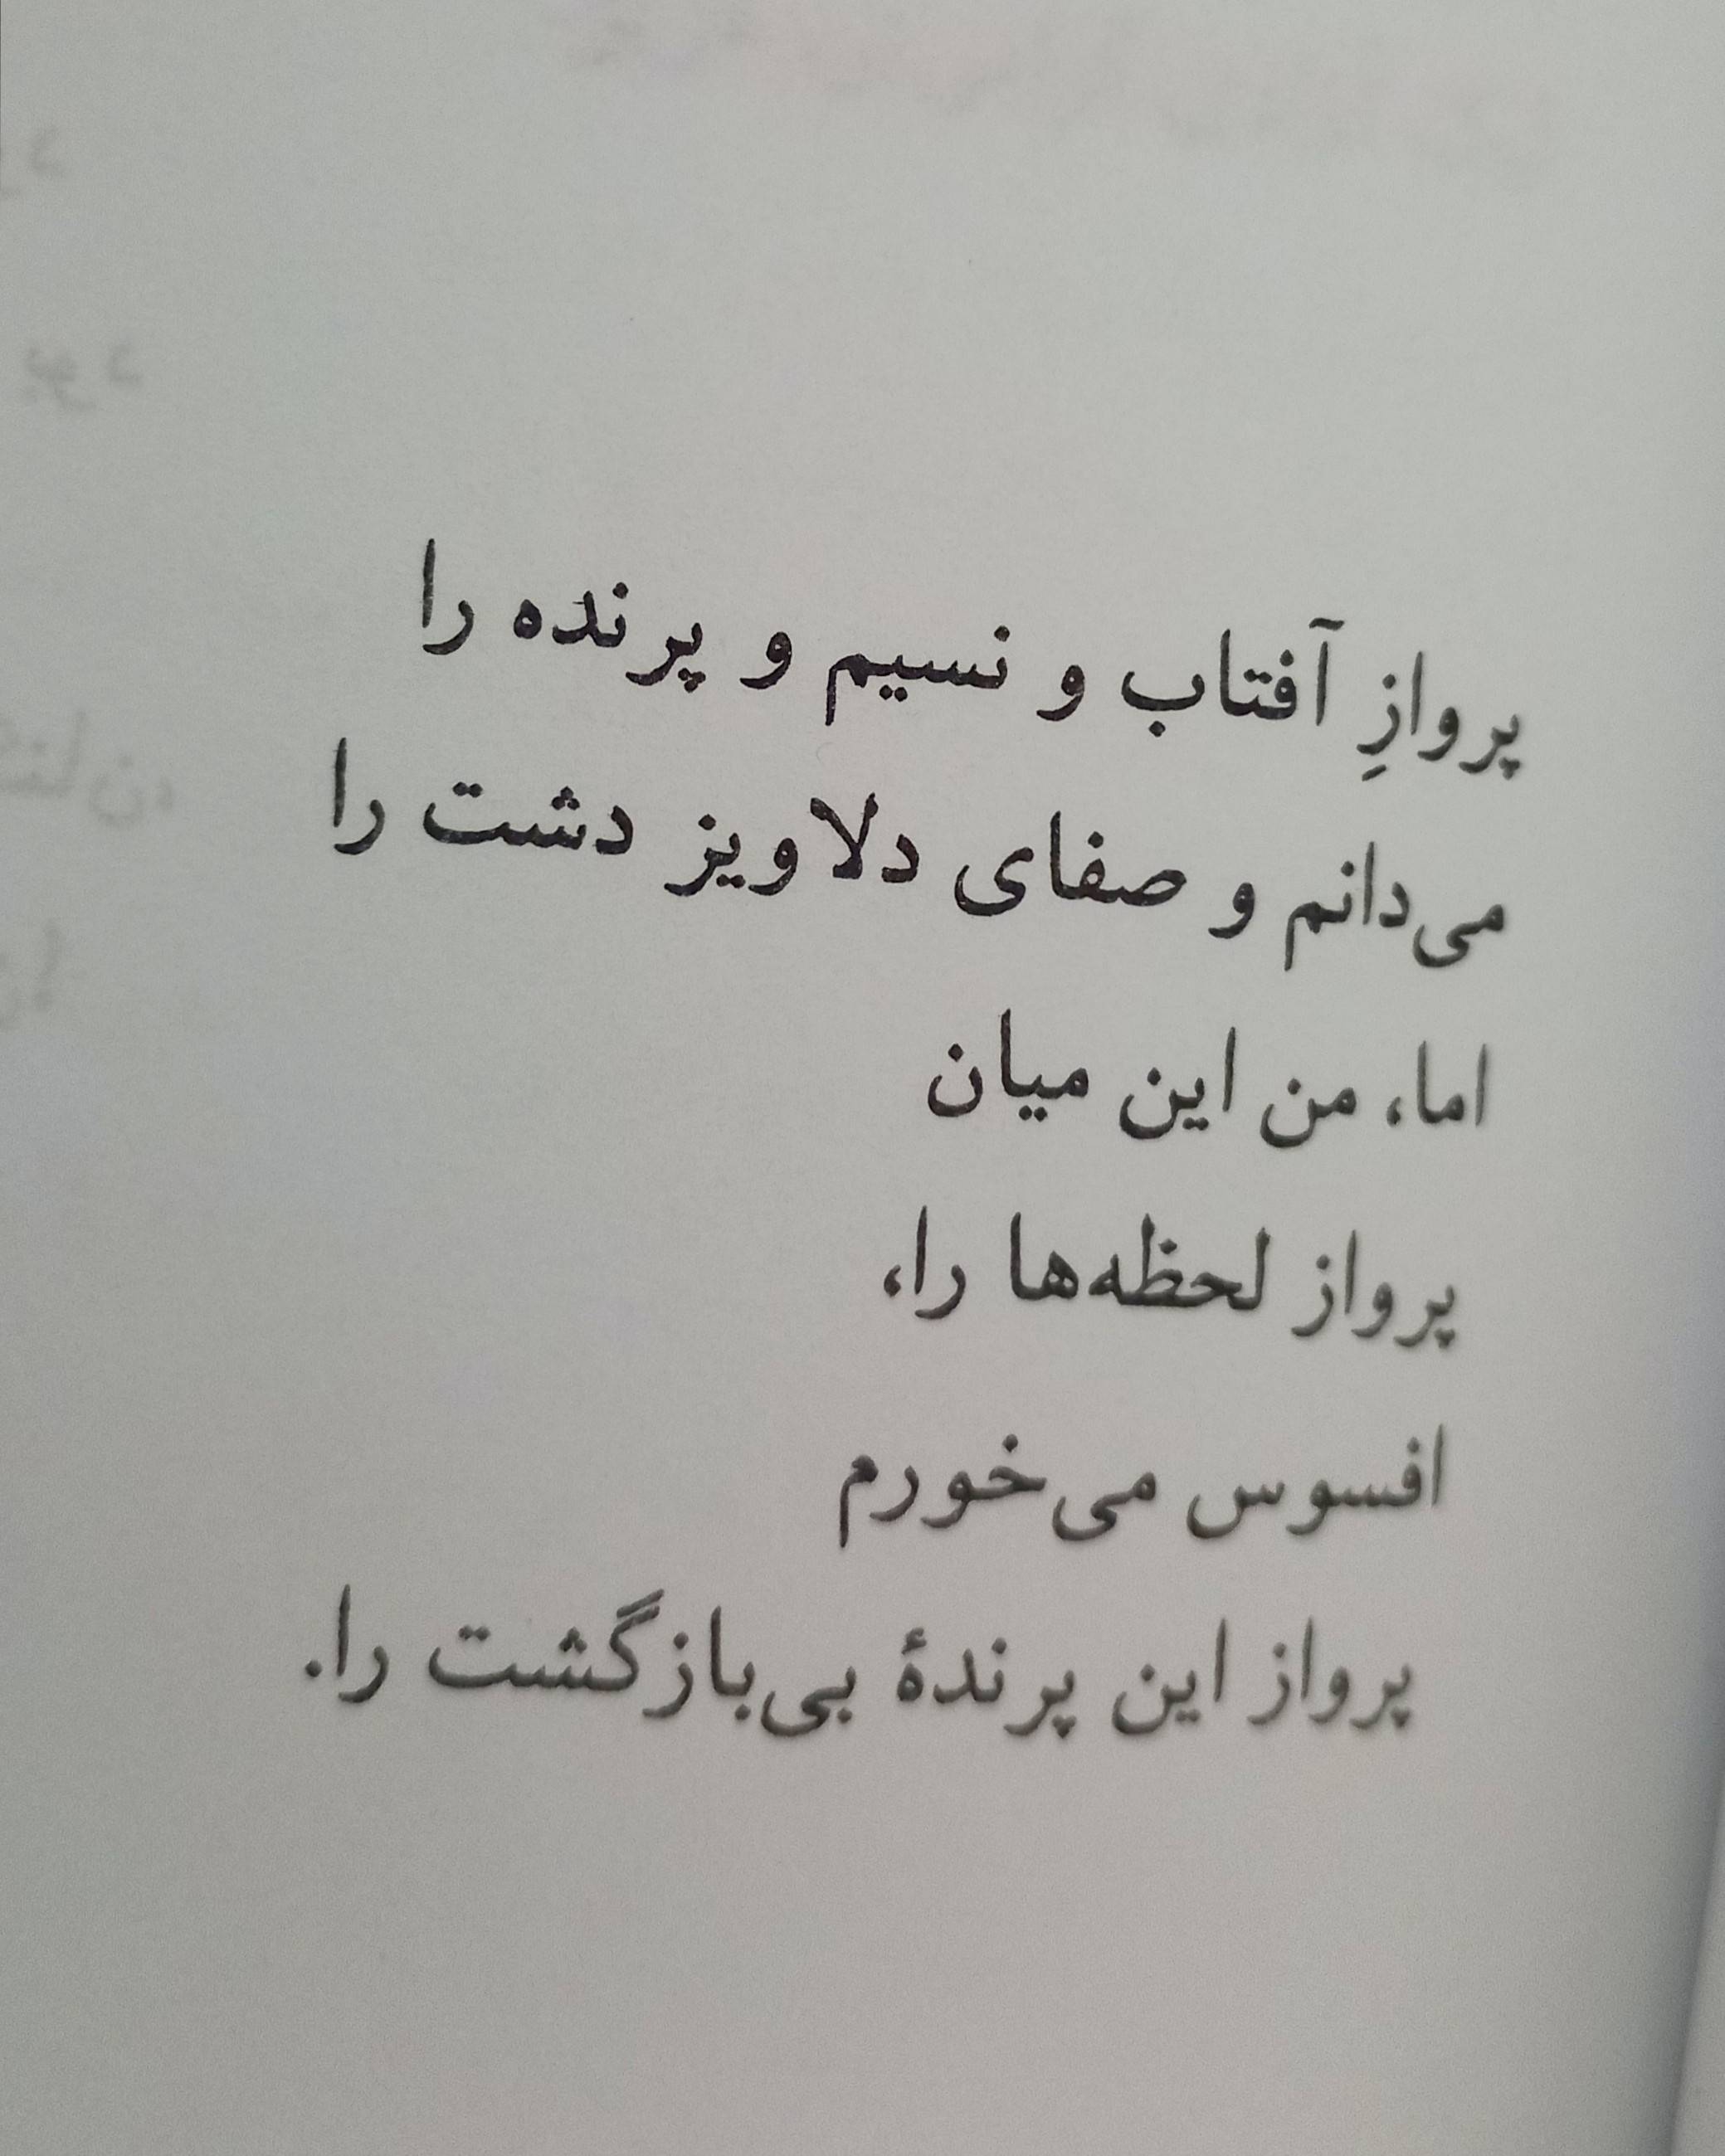 پروازِ آفتاب و نسیم و پرنده را
می‌دانم و صفای دلاویز دشت را
اما، من این میان
پرواز لحظه‌ها را،
افسوس می‌خورم
پرواز این پرندهٔ بی‌بازگشت را.